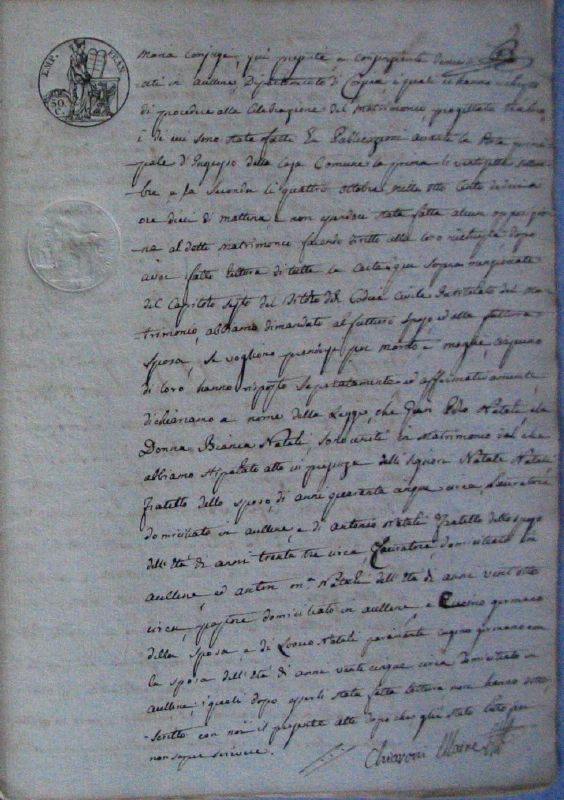 EMP. FRAN.
50 C.
Maria conjuge, qui presenti e consenzienti
in aullene, Dipartimento di Corsica, i quali ci hanno
di procedere alla Celebrazione del Matrimonio progettato
e di cui sono state fatte le Publicazioni avanti la Porta
pale d'Ingresso della Casa Comune la prima li vent
bre e la seconda li quattro ottobre nelle otto cento
ore dieci di mattina, e non essendo stata fatta alcuna
ne al detto matrimonio facendo diritto alla loro richiesta dopo
aver fatto lettura di tutte le carte qui sopra menzionate
del Capitolo Sesto del Titolo del Codice Civile Intitolato del Ma
trimonio, abbiamo dimandato al futturo sposo, ed alla futtura
sposa, se vogliono prendersi per marito e moglie, ciascuno
di loro hanno risposto separatamente ed affermativamente
dichiariamo a nome della Legge, che Gian Natali, e la
Donna Bianca Natali, sono uniti in Matrimonio, dal che
abbiamo stipolato atto in presenza delli Signori Natale Natali
fratello dello sposo, di anni quaranta cinque circa, Lavoratore
domiciliato in aullene, e di antonio Natali fratello dello sposo
dell'età di anni trenta tre circa, Lavoratore domiciliato in
aullene, ed anton Natali dell'età di anni vent otto
circa, pastore domiciliato in aullene, e Cucino germano
della sposa, e di Natali parimente cugino germano con
la sposa dell'età di anni venti cinque circa domiciliato in
aullene; i quali dopo esserli stata fatta lettura non hanno sotto
scritto con noi il presente atto dopo che gli è stato letto per
non sapere scrivere.
Chiaroni Maire